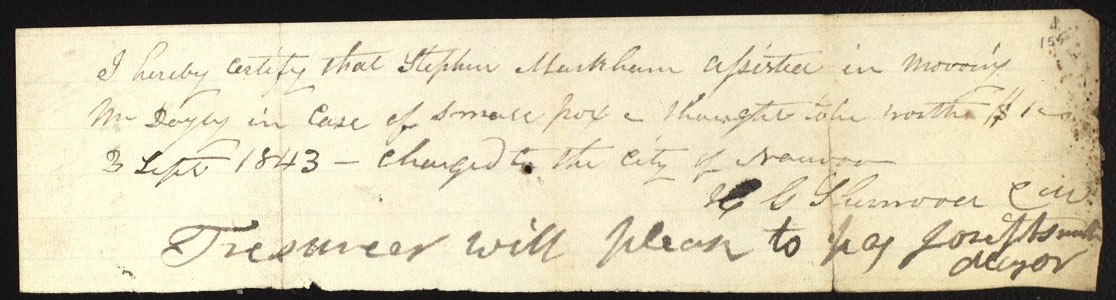 4
155
I hereby certify that Stephen Markham assisted in mooving
Mr Dayly in Case of small pox & thought to be worth $1
3 Sept 1843 – Charged to the City of Nauvoo
H G Sherwood
Tresureer will pleas to pay Joseph Smith
Mayor